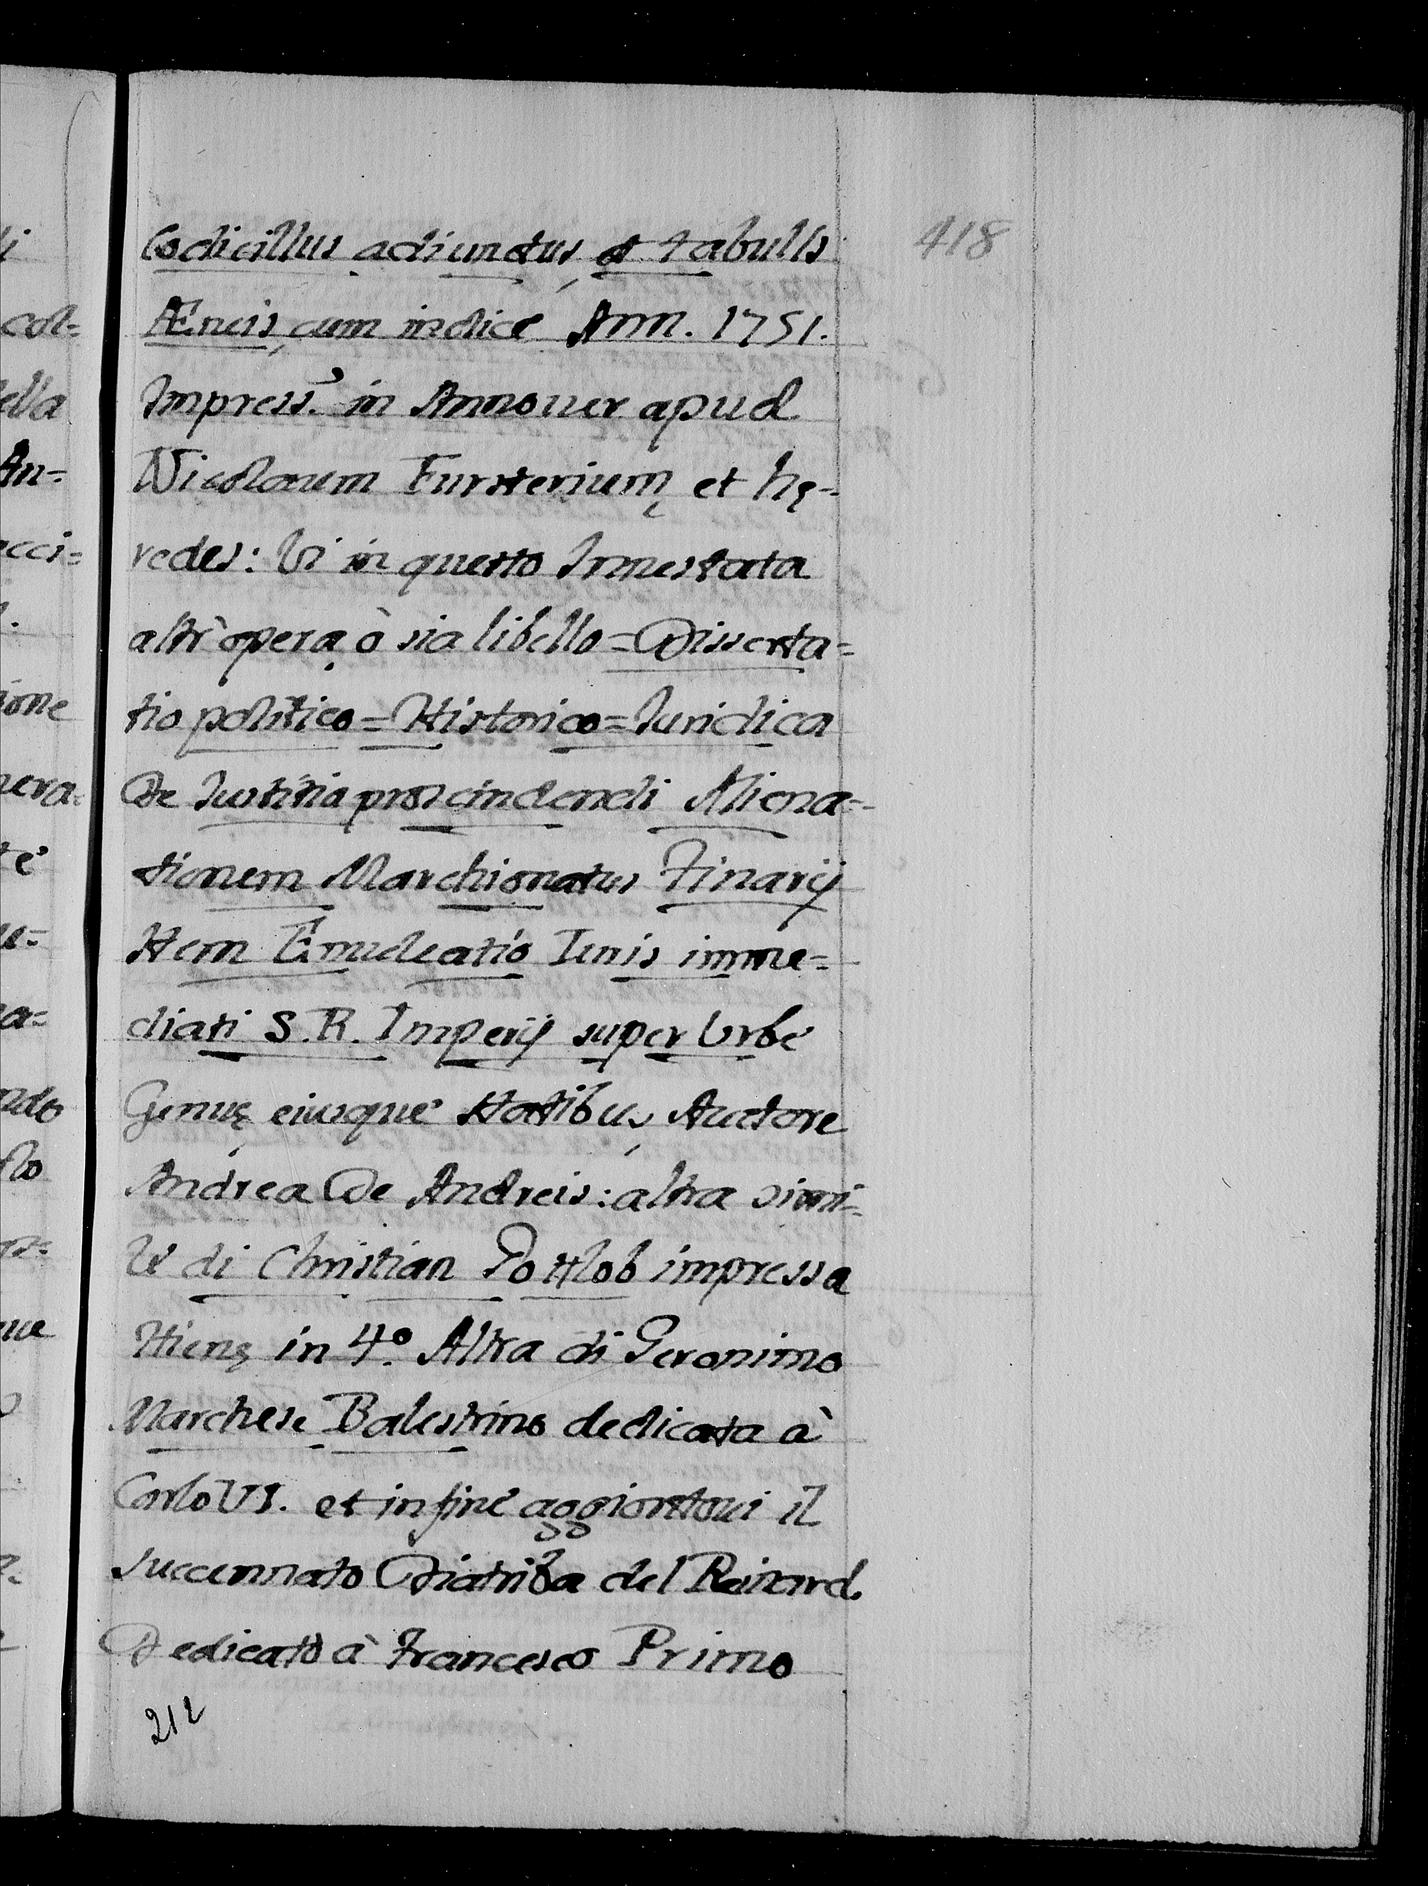 418
Codicillus adiunctus, et tabulis
Æneis, cum indice Ann. 1751.
Impress. in Annouer apud
Nicolaum Fursterium, et hę-
redes: Vi in questo Innestata
altr'opera, ò sia libello = Disserta=
tio politico = Historico = Iuridica
De Iustitia proscindendi Aliena=
tionem Marchionatus Finarij
Item Enucleatio Iuris imme=
diati S. R. Imperij super Urbe
Genuę eiusque statibus, Auctore
Andrea De Andreis: altra simi=
le di Christian Gottlob impressa
Hienę in 4º. Altra di Geronimo
Marchese Balestrino dedicata à
Carlo VI. et in fine aggiontoui il
succennato Diatriba del Reinard.
Dedicato à Francesco Primo
212